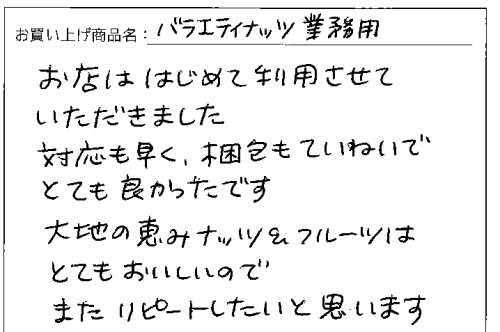 お買い上げ商品名：バラエティナッツ 業務用
お店は はじめて利用させて
いただきました
対応も早く、梱包もていねいで
とても良かったです
大地の恵みナッツ&フルーツは
とてもおいしいので
また リピートしたいと思います